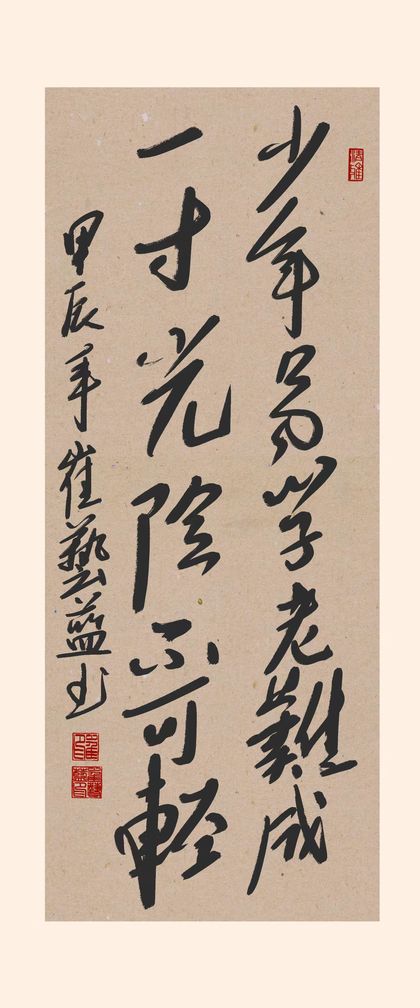 少年易学老難成
一寸光陰不可輕
甲辰年崔藝藍书